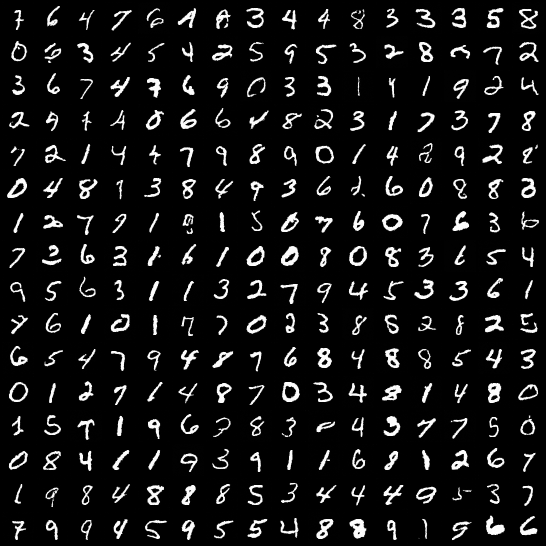 7 6 4 7 6 1 8 3 4 4 8 3 3 3 5 8
0 5 3 4 5 4 2 5 9 5 3 2 8 5 7 2
3 6 7 4 7 6 9 0 3 3 1 4 1 9 2 4
2 9 4 4 0 6 6 4 8 2 3 1 7 3 7 8
7 2 1 4 4 7 9 8 9 0 1 4 2 9 2 8
0 4 8 1 3 8 4 9 3 6 2 6 0 8 8 3
1 2 7 9 1 8 1 5 0 7 6 0 7 6 3 6
7 2 6 3 1 6 1 0 0 8 0 8 3 6 5 4
9 5 6 3 1 1 3 2 7 9 4 5 3 3 6 1
7 6 1 0 1 7 7 0 2 3 8 8 2 8 2 5
6 5 4 7 9 4 8 7 6 8 4 8 8 5 4 3
0 1 2 7 1 4 8 7 0 3 4 8 1 4 8 0
1 5 7 1 9 6 3 8 3 4 3 7 7 5 0
0 8 4 1 1 9 3 9 1 1 6 8 1 2 6 7
1 9 8 4 8 8 8 5 3 4 4 4 9 5 3 7
7 9 9 4 5 9 5 5 4 8 8 9 1 5 6 6